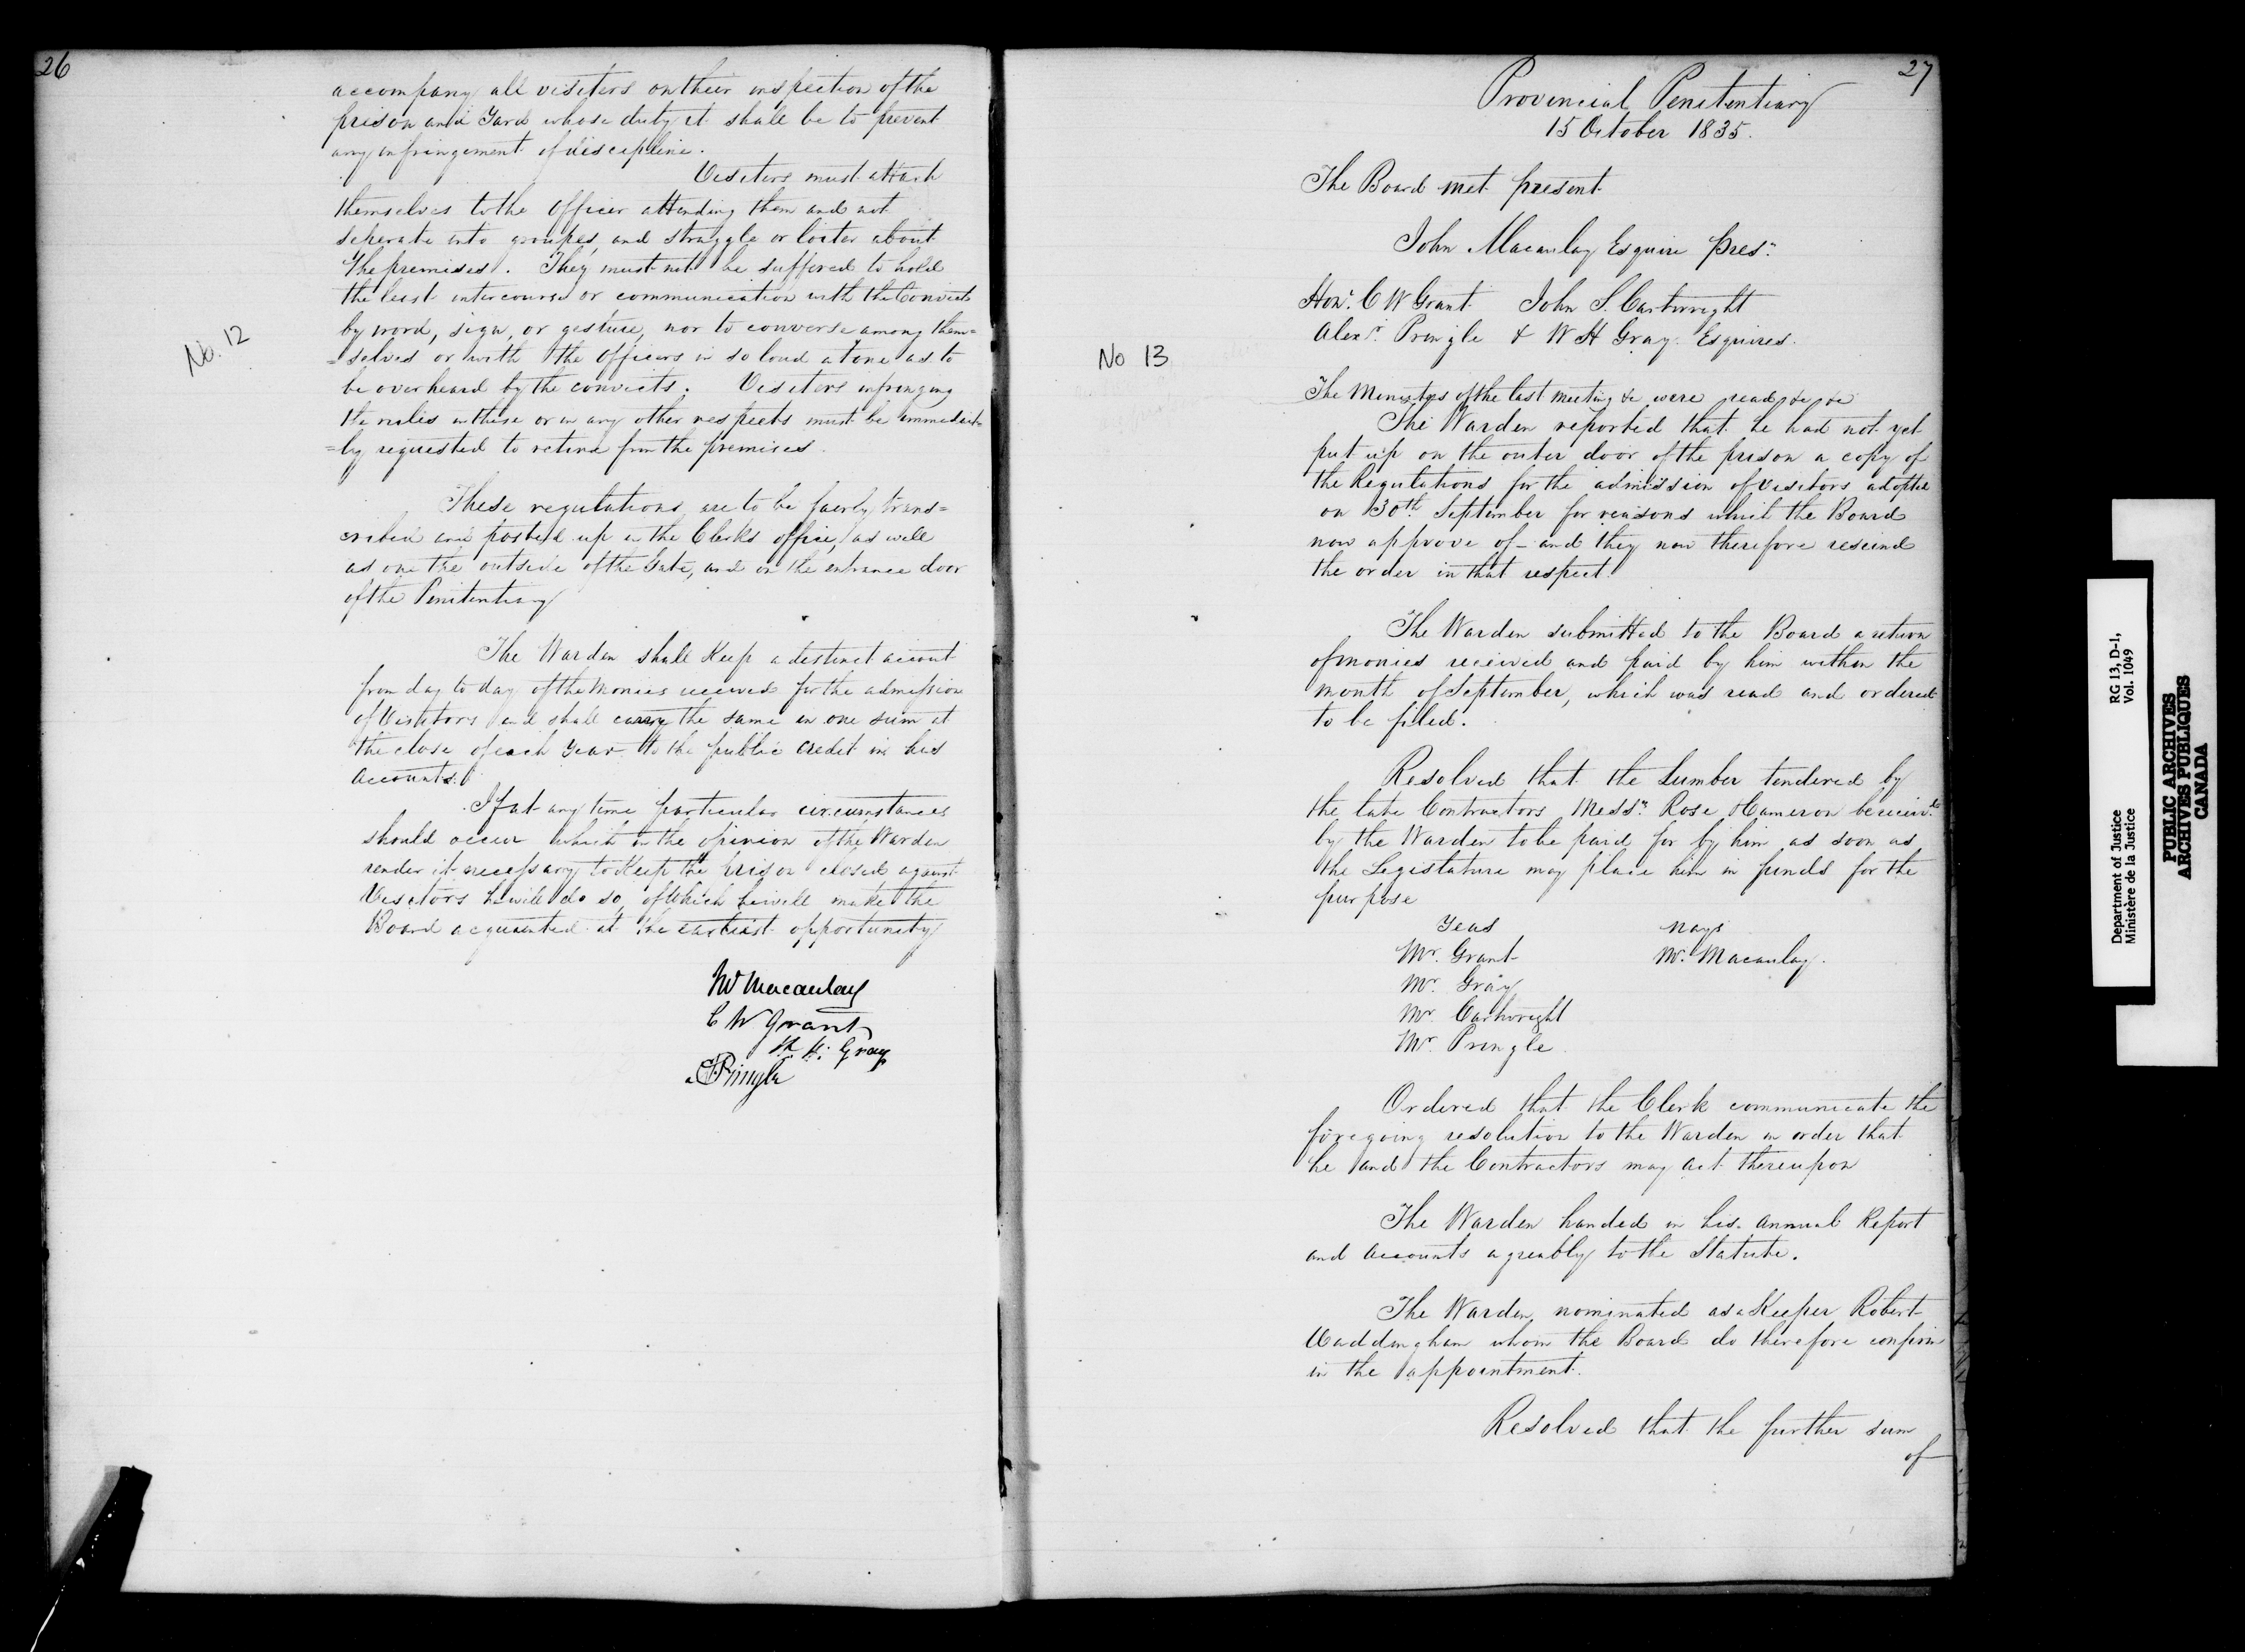 26
accompany all visitors on their inspection of the
prison and Yard whose duty it shall be to prevent
any infringement of discipline.
Visitors must attach
themselves to the Officer attending them and not
seperate into groupes, and straggle or loiter about
the premises. They must not be suffered to hold
the least intercourse or communication with the Convicts
by word, sign, or gesture, nor to converse among them=
=selves or with the Officers in so loud a tone as to
be overheard by the convicts. Visitors infringing
the rules in these or in any other respects must be immediate=
=ly requested to retire from the premises.
No. 12
These regulations are to be fairly trans=
cribed and posted up in the Clerks office, as well
as on the outside of the Gate, and on the entrance door
of the Penitentiary
The Warden shall Keep a distinct account
from day to day of the Monies received for the admission
of Visitors and shall carry the same in one sum at
the close of each Year to the public Credit in his
Accounts.
If at any time particular circumstances
should occur which in the opinion of the Warden
render it necessary to Keep the prison closed against
Visitors he will do so, of Which he will make the
Board acquainted at the earliest opportunity
Jno Macaulay
C W Grant
W. H. Gray
A Pringle
27
Provincial Penitentiary
15 October 1835.
The Board met present
John Macaulay Esquire Presn.
Honl. C W Grant John S. Cartwright
Alexr. Pringle & W H Gray Esquires.
No 13
The Minutes of the last meeting &c were read &c &c
The Warden reported that he had not yet
put up on the outer door of the prison a copy of
the Regulations for the admission of visitors adopted
on 30th September for reasons which the Board
now approve of – and they now therefore rescind
the order in that respect.
The Warden submitted to the Board a return
of monies received and paid by him within the
month of September, which was read and ordered
to be filed.
Resolved that the Lumber tendered by
the late Contractors Messrs. Rose & Cameron be receivd.
by the Warden to be paid for by him as soon as
the Legislature may place him in funds for the
purpose
Yeas Nays
Mr. Grant Mr. Macaulay.
Mr. Gray
Mr. Cartwright
Mr. Pringle
Ordered that the Clerk communicate the
foregoing resolution to the Warden in order that
he and the Contractors may act thereupon
The Warden handed in his Annual Report
and Accounts agreably to the Statute.
The Warden nominated as a Keeper Robert
Waddingham whom the Board do therefore confirm
in the appointment.
Resolved that the further sum
of
Department of Justice RG 13, D-1,
Ministère de la Justice Vol. 1049
PUBLIC ARCHIVES
ARCHIVES PUBLIQUES
CANADA